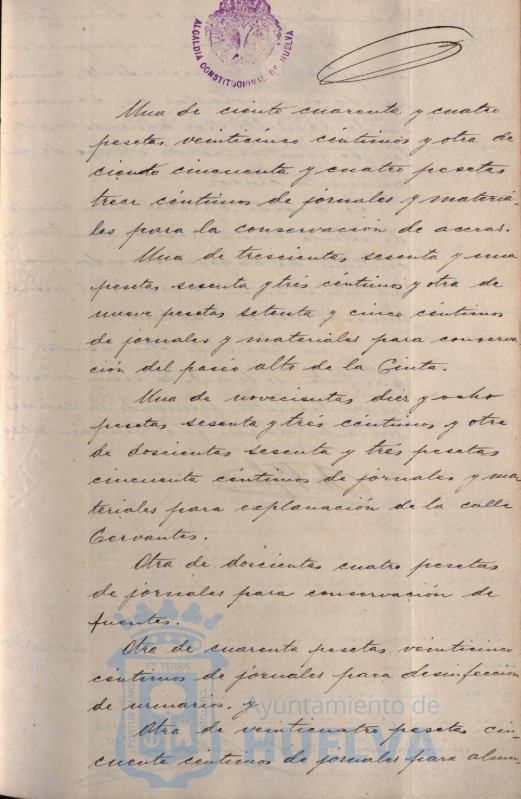 ALCALDIA CONSTITUCIONAL DE HUELVA
Una de ciento cuarenta y cuatro
pesetas veinticinco céntimos y otra de
ciento cincuenta y cuatro pesetas
trece céntimos de jornales y materia-
les para la conservación de aceras.
Una de trescientas sesenta y una
pesetas sesenta y tres céntimos y otra de
nueve pesetas setenta y cinco céntimos
de jornales y materiales para conserva-
ción del paseo alto de la Cinta.
Una de novecientas diez y ocho
pesetas sesenta y tres céntimos y otra
de doscientas sesenta y tres pesetas
cincuenta céntimos de jornales y ma-
teriales para explanación de la calle
Cervantes.
Otra de doscientas cuatro pesetas
de jornales para conservación de
fuentes.
Otra de cuarenta pesetas veinticinco
céntimos de jornales para desinfección
de urinarios. y
Otra de veinticuatro pesetas cin-
cuenta céntimos de jornales para alum-
ET TERRÆ
Ayuntamiento de
HUELVA